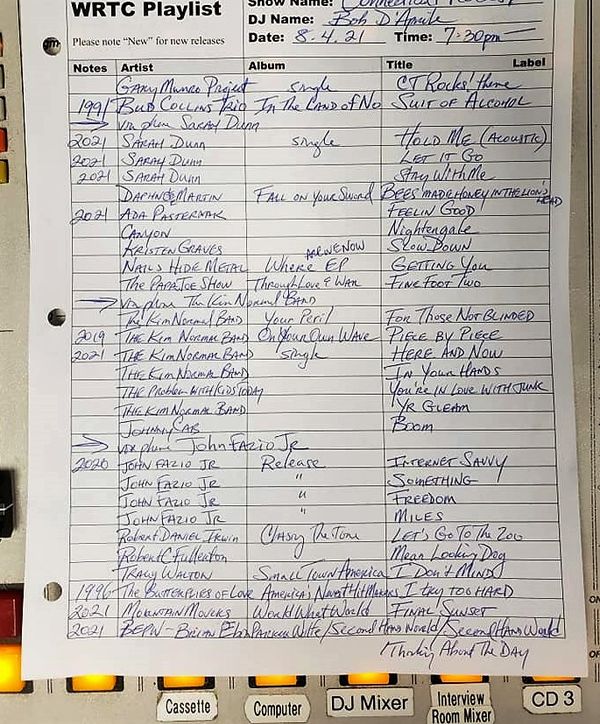 WRTC Playlist
Show Name: Connecticut
DJ Name: Bob D'Aprile
Please note "New" for new releases
Date: 8.4.21 Time: 7-30pm
Notes Artist Album Title Label
Gary Munro Project single CT Rocks! theme
1991 Bud Collins Trio In The Land of No Suit of Alcohol
→ via phone Sarah Dunn
2021 Sarah Dunn single Hold Me (Acoustic)
2021 Sarah Dunn Let It Go
2021 Sarah Dunn Stay With Me
Daphne Martin Fall on Your Sword Bees made Honey in the Lion's Head
2021 Ada Pasternak Feelin Good
Canyon Nightengale
Kristen Graves Slow Down
Nails Hide Metal Where EP Are We Now Getting You
The Papa Joe Show Through Love & War Fine Foot Two
→ via phone The Kim Normal Band
The Kim Normal Band Your Peril For Those Not Blinded
2019 The Kim Normal Band On Your Own Wave Piece By Piece
2021 The Kim Normal Band single Here And Now
The Kim Normal Band In Your Hands
The Problem With Kids Today You're In Love With Junk
The Kim Normal Band Yr Gleam
Johnny Cab Boom
→ via phone John Fazio Jr
2020 John Fazio Jr Release Internet Savvy
John Fazio Jr " Something
John Fazio Jr " Freedom
John Fazio Jr " Miles
Robert Daniel Irwin Chasing The Tone Let's Go To The Zoo
Robert C Fullerton Mean Looking Dog
Tracy Walton Small Town America I Don't Mind
1996 The Butterflies of Love America's Newest Hit Makers I try too Hard
2021 Mountain Movers World What World Final Sunset
2021 BEPW - Brian Elan Parker Wilfe/Second Hand World/Second Hand World
Thinking About The Day
Cassette
Computer
DJ Mixer
Interview
Room Mixer
CD 3